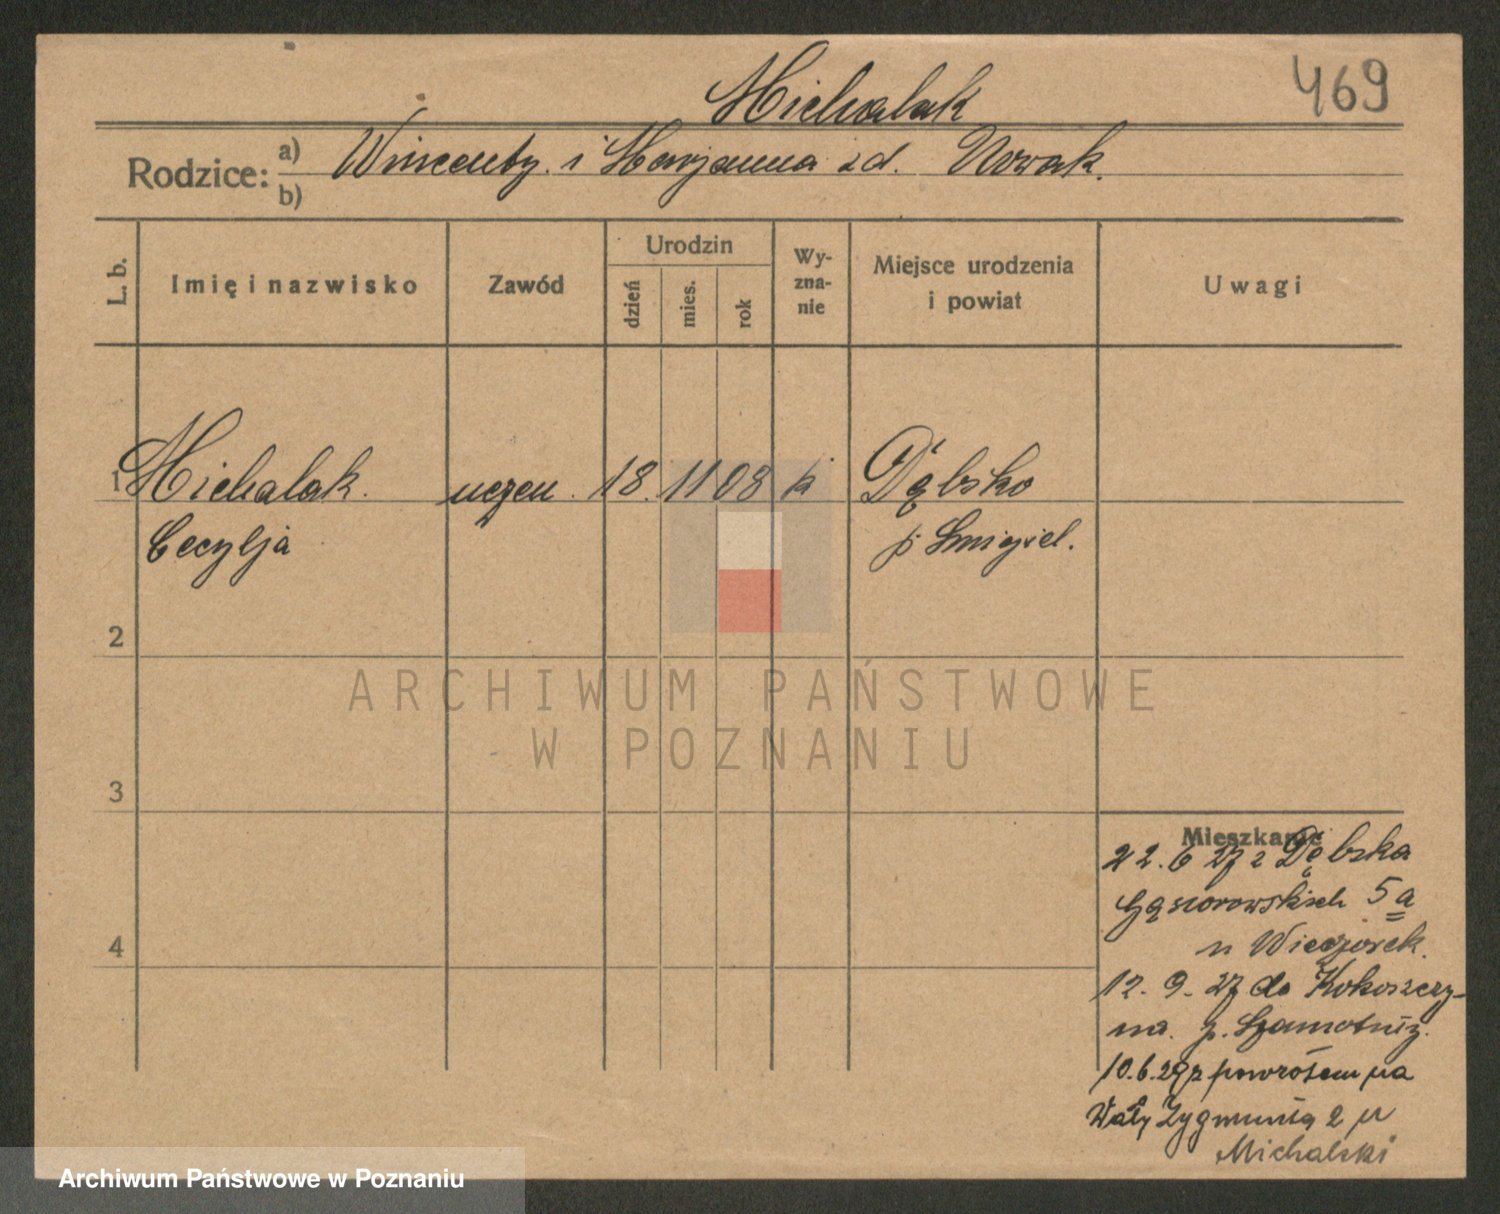 469
Michalak
Rodzice: a) Wincenty i Marjanna zd. Nowak.
b)
L. b.
Imię i nazwisko
Zawód
Urodzin
dzień
mies.
rok
Wy-
zna-
nie
Miejsce urodzenia
i powiat
Uwagi
1 Michalak. uczen. 18. 11 08 k Dąbsko
Cecylja p. Smigiel.
2
ARCHIWUM PAŃSTWOWE
W POZNANIU
3
Mieszkanie
22. 6 27 z Dębska
Gąsiorowskich 5a
u Wieczorek.
4
12. 9. 27 do Kokoszczy-
na. p. Szamotuły.
10.6.29 z powrotem na
Wały Zygmunta 2 u
Michalski
Archiwum Państwowe w Poznaniu